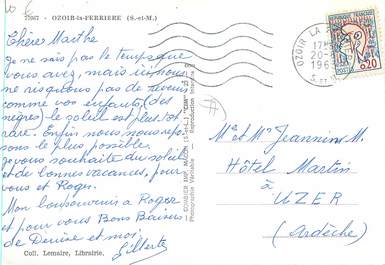 77067 - OZOIR-la-FERRIERE (S.-et-M.)
Chère Marthe
Je ne sais pas le temps que
vous avez, mais ici nous
ne risquons pas de revenir
comme vos enfants (des
nègres) le soleil est plutôt
rare. Enfin nous nous repo
sons le plus possible.
je vous souhaite du soleil
et de bonnes vacances, pour
vous et Roger.
Mon bon souvenir à Roger
et pour vous Bons Baisers
de Denise et moi
Gilberte
Coll. Lemaire, Librairie.
COMBIER IMP. MACON (S.-et-L.) "CIM"
Photographie Véritable - Reproduction Interdite
OZOIR LA
17
20-
196
S. ET M.
POSTES
0,20
Mr et Mme Jeannin M.
Hôtel Martin
à
UZER
(Ardèche)